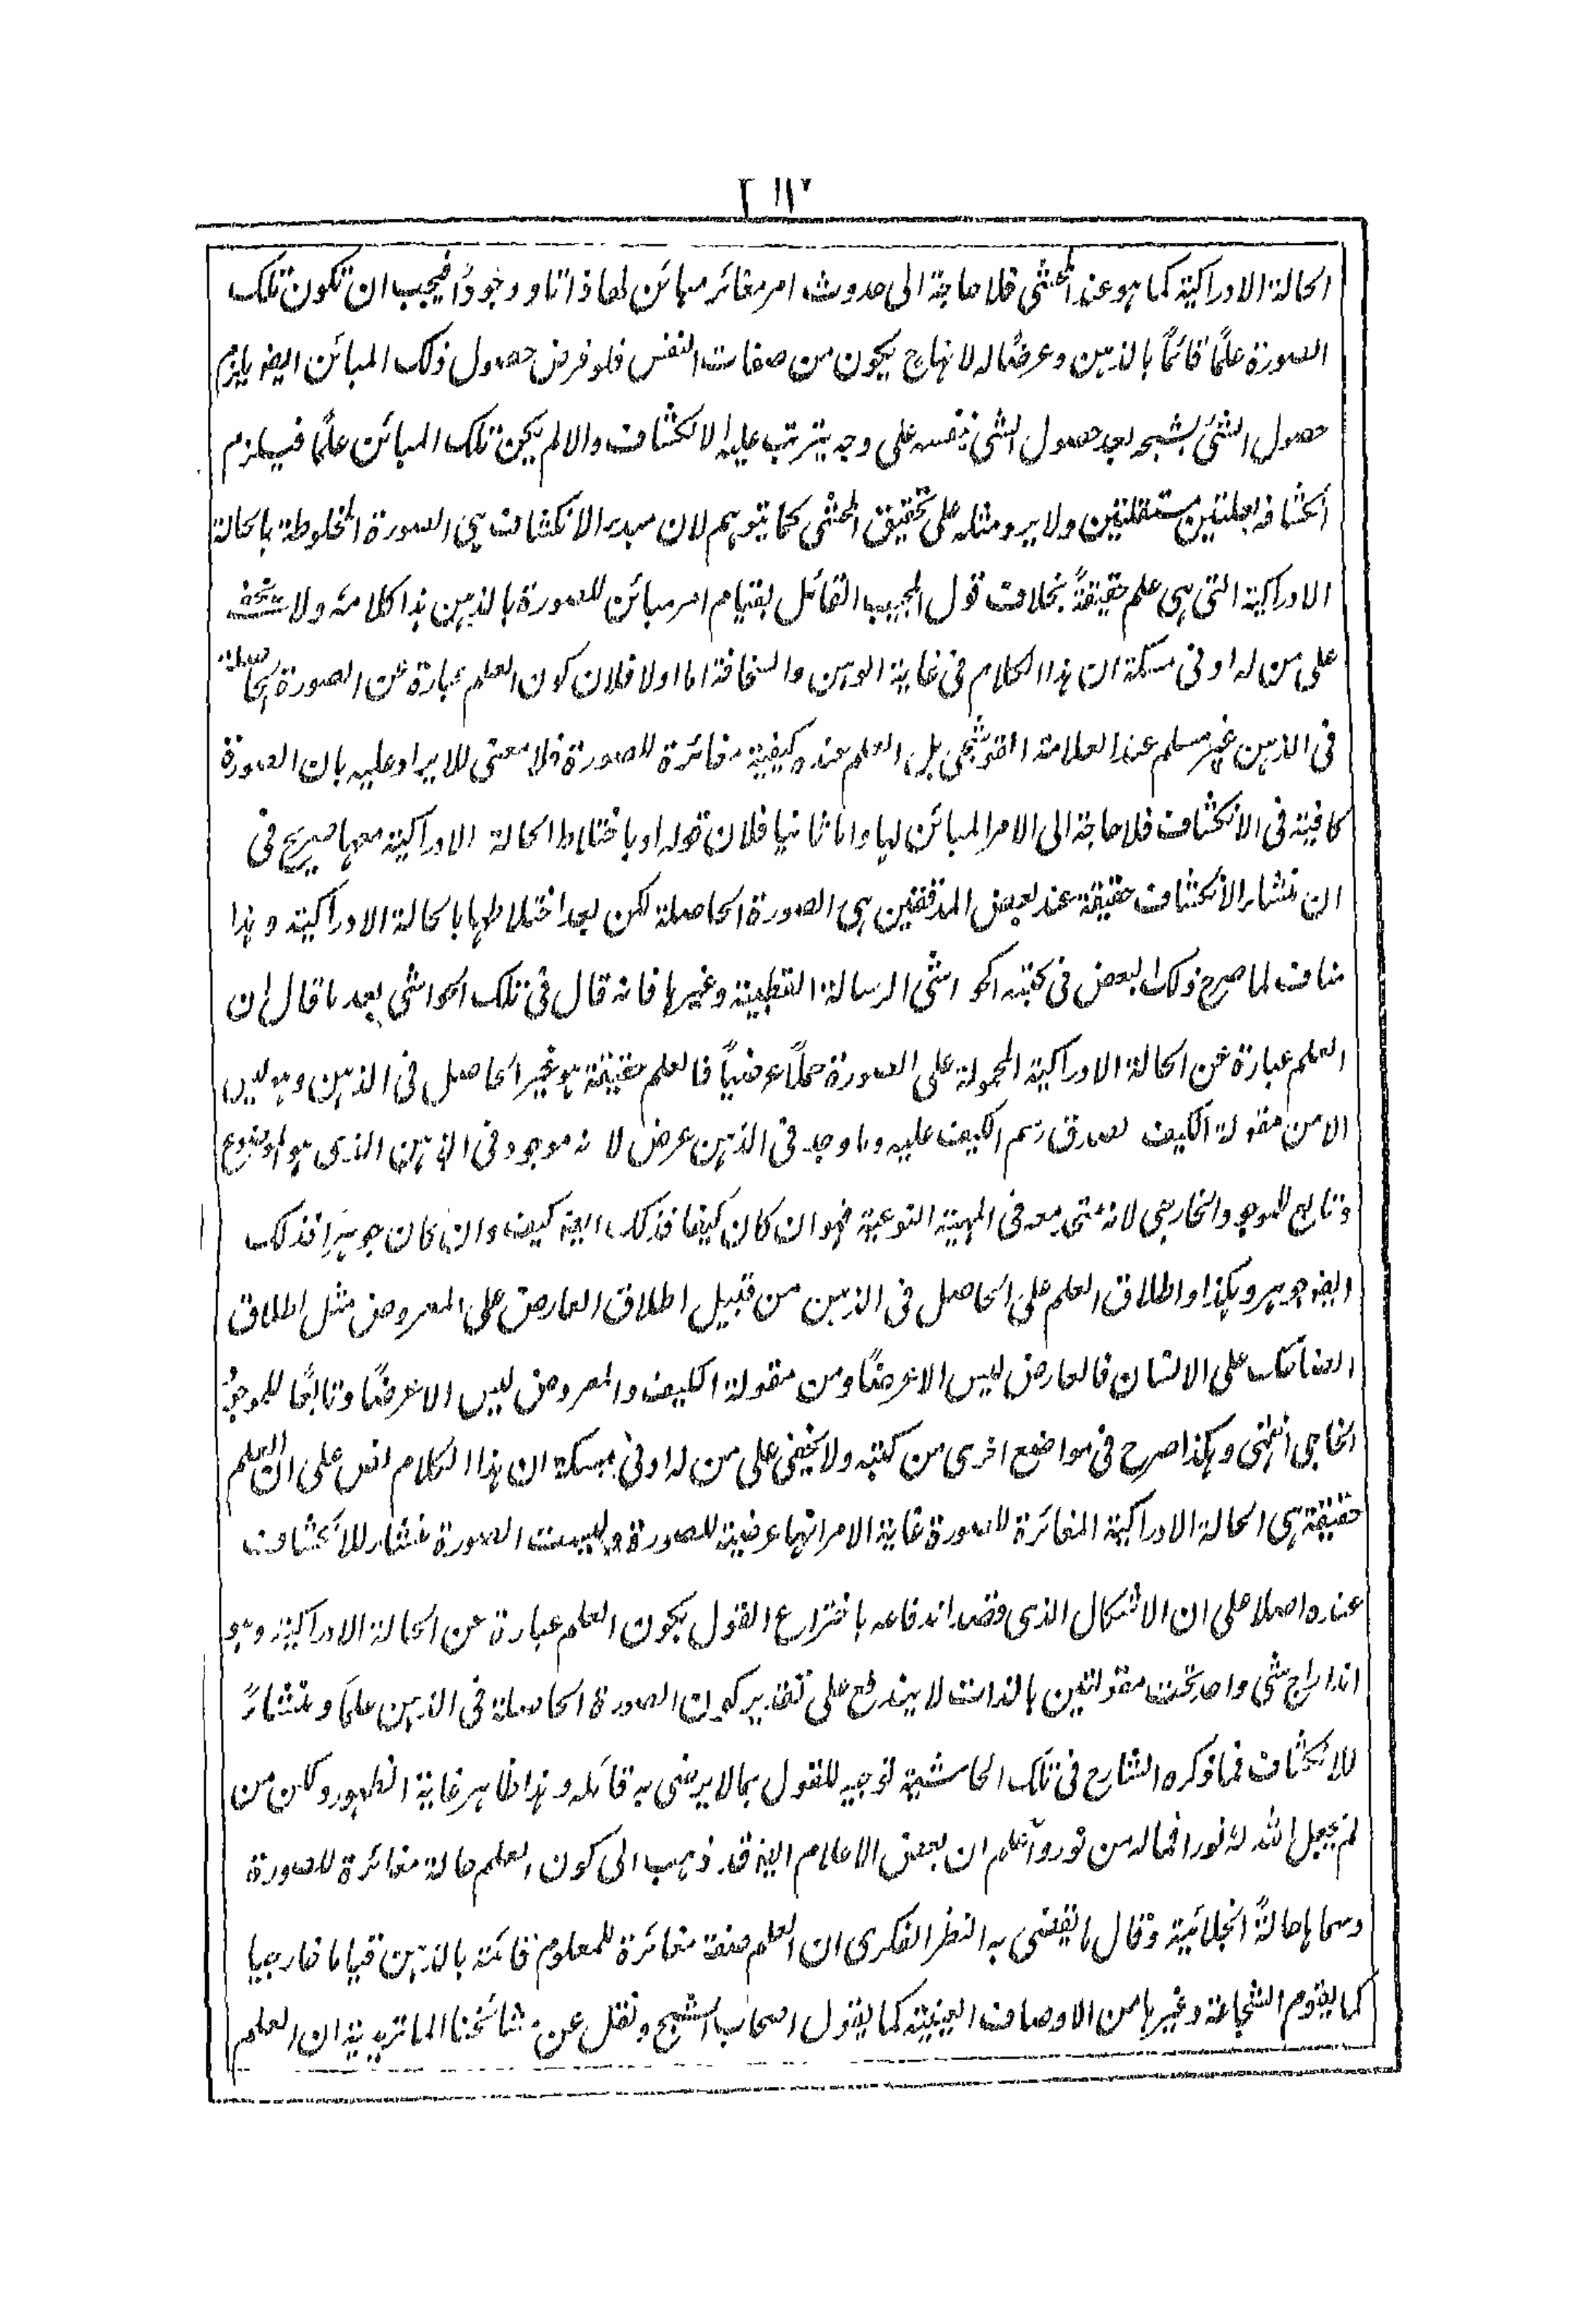 الحالة الادراكية كما هو عند المحشى فلا حاجة الى حدوث امر مغائر مبائن لها ذاتا و وجودًا فيجب ان تكون تلك
الصورة علمًا قائمًا بالذهن وعرضًا له لانها ح يكون من صفات النفس فلو فرض حصول ذلك المبائن ايضا يلزم
حصول الشئ بشبحه بعد حصول الشئ بنفسه على وجه يترتب عليه الانكشاف والا لم يكن تلك المبائن علمًا فيلزم
انكشافه بعلتين مستقلتين ولا يرد مثله على تحقيق المحشى كما يتوهم لان مبدء الانكشاف هى الصورة المخلوطة بالحالة
الادراكية التى هى علم حقيقةً بخلاف قول المجيب القائل بقيام امر مبائن للصورة بالذهن هذا كلامه ولا يخفى
على من له ادنى مسكة ان هذا الكلام فى غاية الوهن والسخافة اما اولا فلان كون العلم عبارة عن الصورة الحاصلة
فى الذهن غير مسلم عند العلامة القوشجى بل العلم عنده كيفية مغائرة للصورة فلا معنى للايراد عليه بان الصورة
كافية فى الانكشاف فلا حاجة الى الامر المبائن لها واما ثانيا فلان قوله او باختلاط الحالة الادراكية معها صريح فى
ان منشاء الانكشاف حقيقة عند بعض المدققين هى الصورة الحاصلة لكن بعد اختلاطها بالحالة الادراكية وهذا
مناف لما صرح ذلك البعض فى كتبه الحواشى الرسالة القطبية وغيرها فانه قال فى تلك الحواشى بعد ما قال ان
العلم عبارة عن الحالة الادراكية المحمولة على الصورة حملًا عرضيًا فالعلم حقيقة هو غير الحاصل فى الذهن وهو ليس
الا من مقولة الكيف لصدق رسم الكيف عليه وما وجد فى الذهن عرض لانه موجود فى الذهن الذى هو الموضوع
وتابع للموجود الخارجى لانه متحد معه فى المهية النوعية فهو ان كان كيفا فذلك ايضا كيف وان كان جوهرا فذلك
ايضا جوهر وهكذا واطلاق العلم على الحاصل فى الذهن من قبيل اطلاق العارض على المعروض مثل اطلاق
الضاحك على الانسان فالعارض ليس الا عرضًا ومن مقولة الكيف والمعروض ليس الا عرضًا وتابعًا للموجود
الخارجى انتهى وهكذا صرح فى مواضع اخرى من كتبه ولا يخفى على من له ادنى مسكة ان هذا الكلام نص على ان العلم
حقيقة هى الحالة الادراكية المغائرة للصورة غاية الامر انها عرضية للصورة وليست الصورة منشاء للانكشاف
عنده اصلا على ان الاشكال الذى قصد اندفاعه باختراع القول بكون العلم عبارة عن الحالة الادراكية وهو
اندراج شئ واحد تحت مقولتين بالذات لا يندفع على تقدير كون الصورة الحاصلة فى الذهن علمًا ومنشاءً
للانكشاف فما ذكره الشارح فى تلك الحاشية توجيه للقول بما لا يرضى به قائله وهذا ظاهر غاية الظهور ولكن من
لم يجعل الله له نورا فما له من نور واعلم ان بعض الاعلام ايضا قد ذهب الى كون العلم حالة مغائرة للصورة
وسماها حالةً انجلائية وقال ما يقضى به النظر الفكرى ان العلم صفة مغائرة للمعلوم قائمة بالذهن قياما خارجيا
كما يقوم الشجاعة وغيرها من الاوصاف العينية كما يقول اصحاب الشبح ونقل عن مشائخنا الماتريدية ان العلم